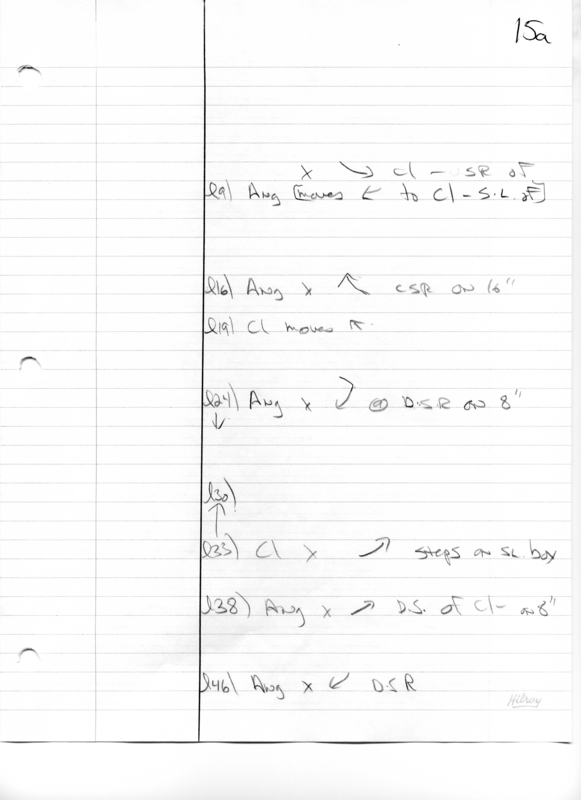 15a
x ↘ Cl - USR of
l9) Ang [moves ← to Cl - S.L. of]
l16) Ang x ↖ CSR on 16"
l19) Cl moves ↖
l24) Ang x ↙ @ D.S.R on 8"
↓
l30)
↑
l33) Cl x ↗ steps on SL. box
l38) Ang x ↗ D.S. of Cl - on 8"
l46) Ang x ↙ D.S.R
Hilroy